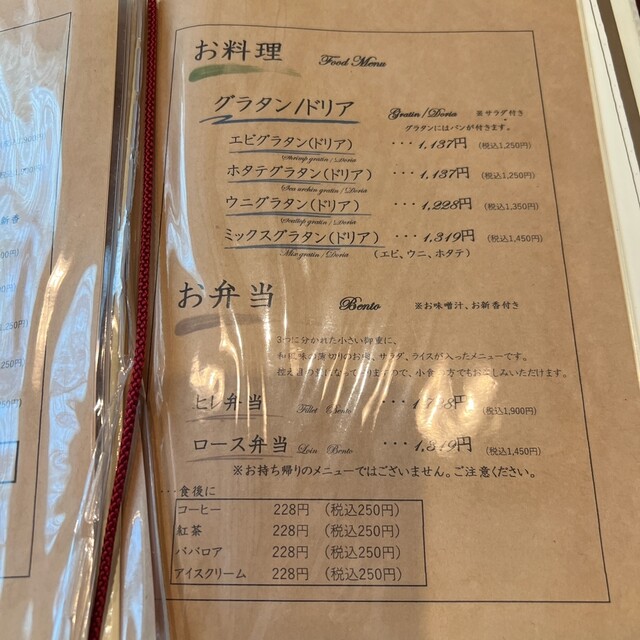 お料理 Food Menu
グラタン/ドリア Gratin/Doria ※サラダ付き
グラタンにはパンが付きます。
エビグラタン(ドリア) ･･･1,137円 (税込1,250円)
Shrimp gratin / Doria
ホタテグラタン(ドリア) ･･･1,137円 (税込1,250円)
Sea urchin gratin / Doria
ウニグラタン(ドリア) ･･･1,228円 (税込1,350円)
Scallop gratin / Doria
ミックスグラタン(ドリア) ･･･1,319円 (税込1,450円)
Mix gratin / Doria (エビ、ウニ、ホタテ)
お弁当 Bento ※お味噌汁、お新香付き
3つに分かれた小さい御重に、
和風味の薄切りのお肉、サラダ、ライスが入ったメニューです。
控え目の量になっておりますので、小食の方でもお楽しみいただけます。
ヒレ弁当 Fillet Bento (税込1,900円)
ロース弁当 Loin Bento (税込1,450円)
※お持ち帰りのメニューではございません。ご注意ください。
･･･食後に
コーヒー 228円 (税込250円)
紅茶 228円 (税込250円)
ババロア 228円 (税込250円)
アイスクリーム 228円 (税込250円)